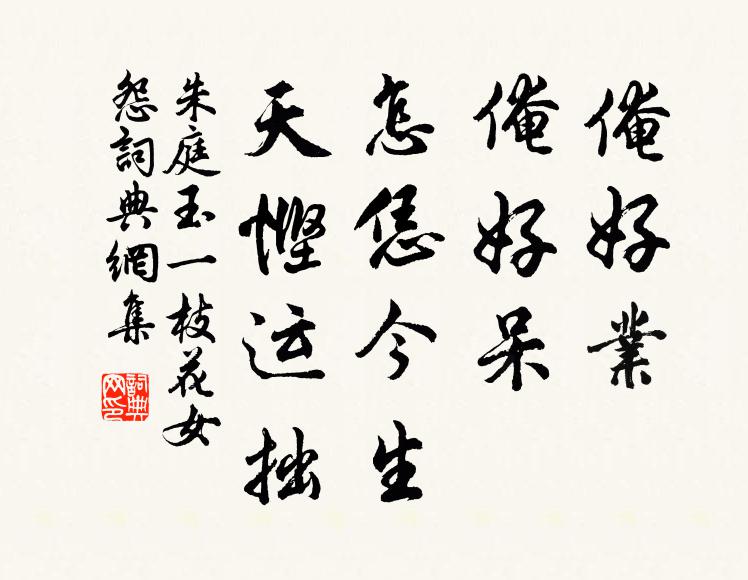 俺好業
俺好呆
怎恁今生
天慳运拙
朱庭玉一枝花女
怨詞典網集
詞典
网印